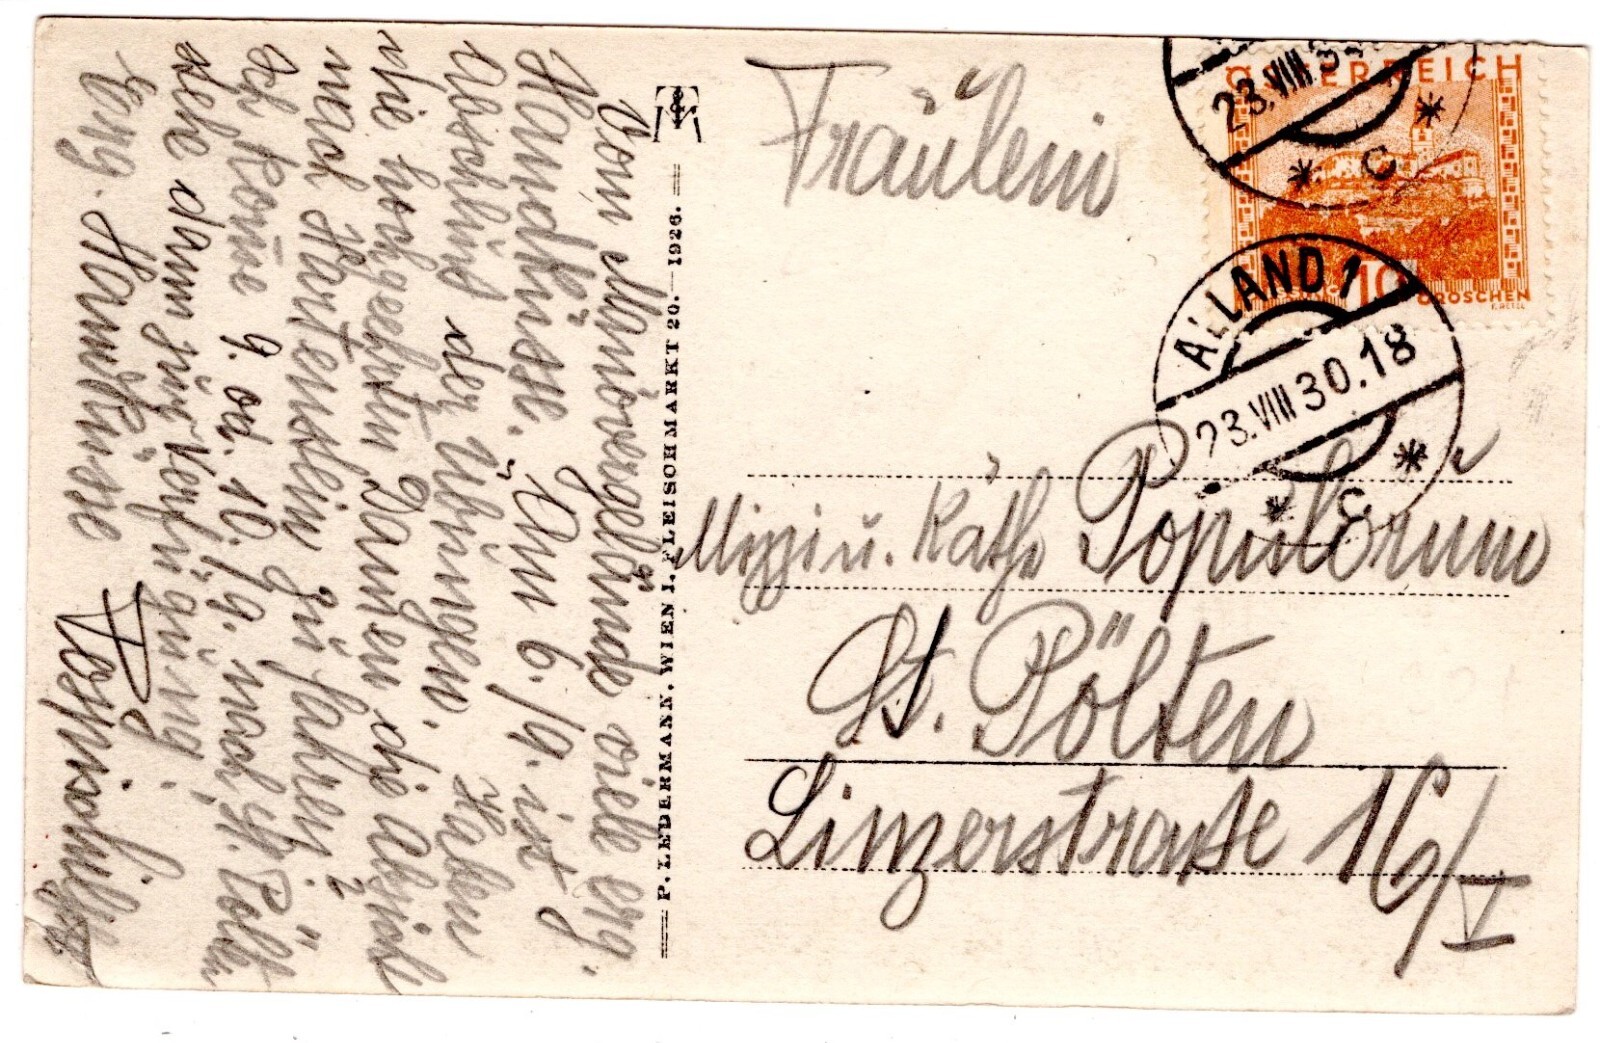 Vom Manövergelände viele erg.
Handküsse. Am 6./9. ist
Abschluß der Übungen. Haben
die hochgeehrten Damen die Absicht
nach Hartenstein zu fahren?
Ich kom̅e 9. od. 10./9. nach St. Pölten
stehe dann zur Verfügung.
Erg. Handküsse
P. LEDERMANN, WIEN I. FLEISCHMARKT 20. — 1926.
Fräulein
Mizzi u. Käthe Populorum
St. Pölten
Linzerstraße 16/I
ÖSTERREICH
10 GROSCHEN
23.VIII 3
C
ALLAND 1
23.VIII 30.18
C